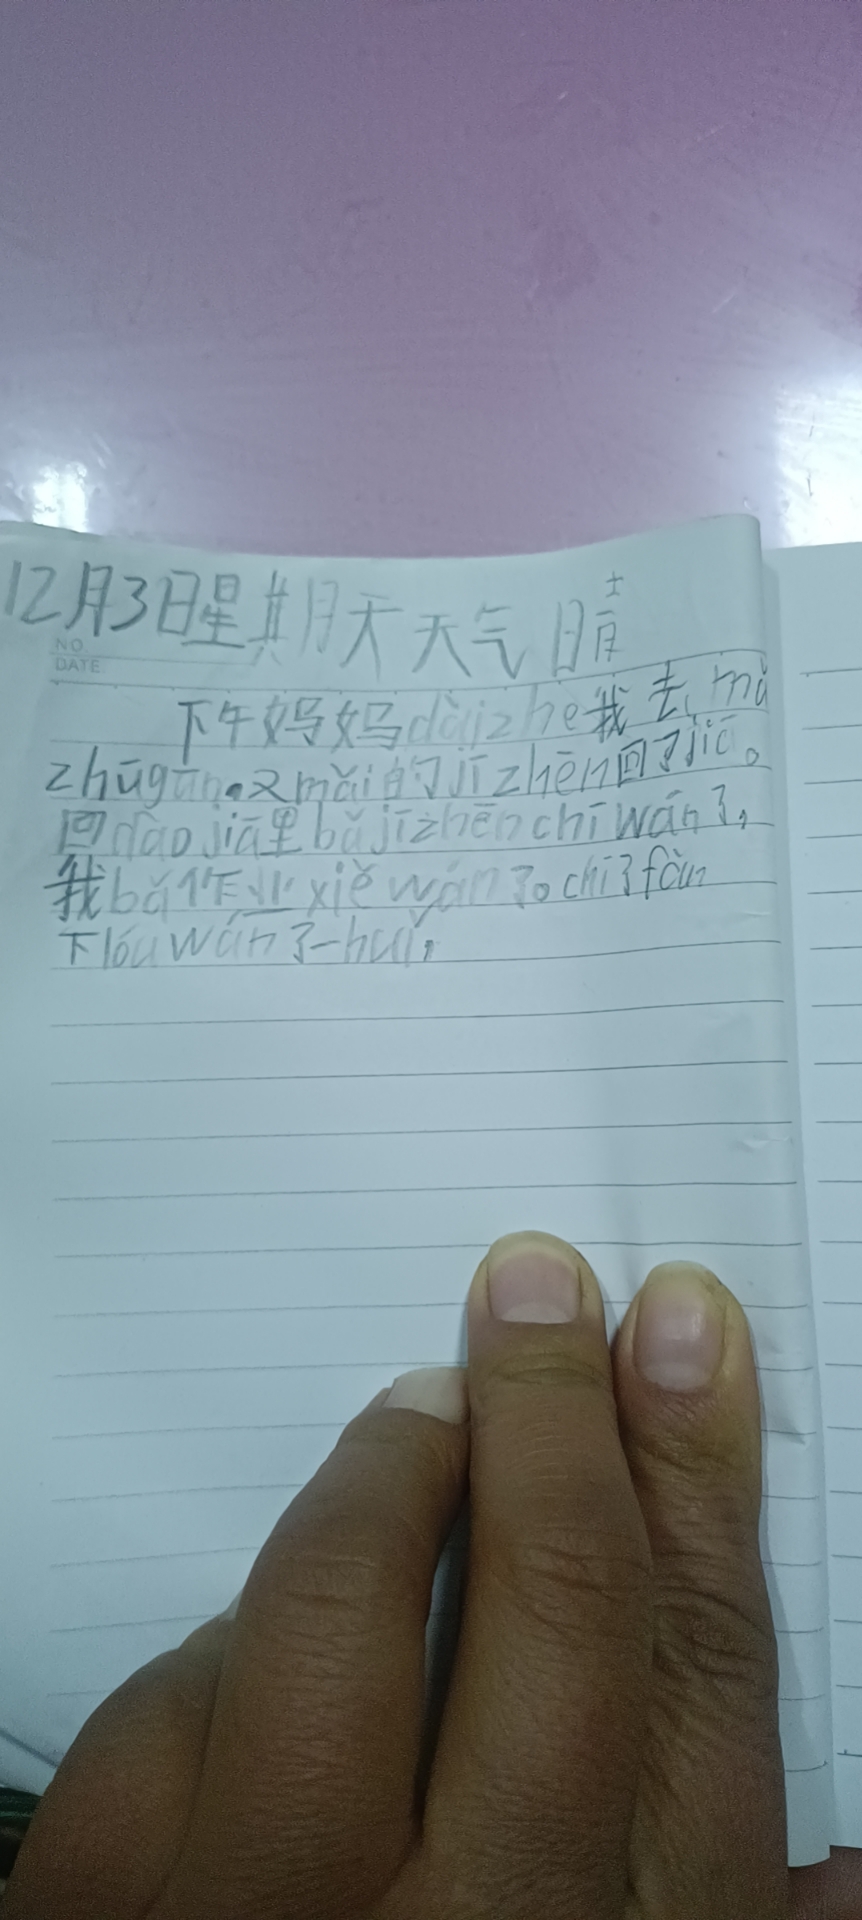 12月3日星期天天气晴
NO.
DATE
下午妈妈dàizhe我去mǎ
zhūgūn。又mǎi的jīzhēn回了jiā。
回dàojiā里bǎjīzhēnchīwán了,
我bǎ作业xiěwán了。chī了fàn
下lóuwán了一huǐ,